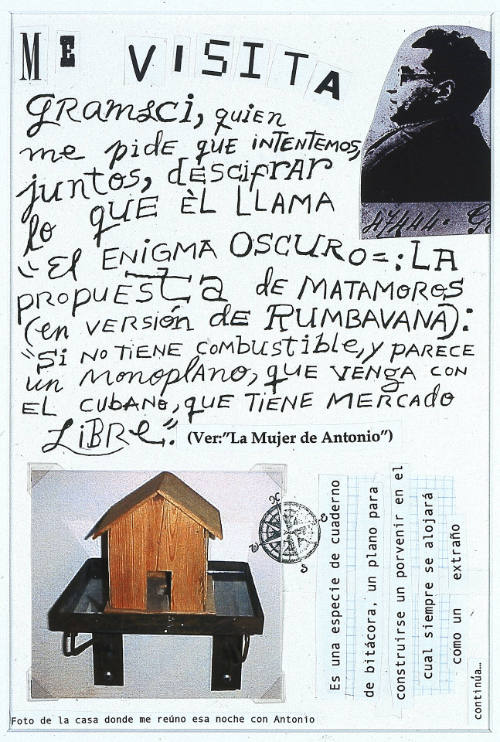 ME VISITA
GRAMSCi, quien
me pide que iNTENTEMOS,
juntos, dESCifRAR
lo que ÈL LLAMA
"El ENiGMA OSCURO=:LA
PROPUESTa de MATAMOROS
(en VERSióN DE RUMBAVANA):
"Si NO TiENE COMbUStible, y PARECE
un Monoplano, que VENga CON
EL CUBANO, QUE TiENE MERCAdo
LiBRe".
(Ver:"La Mujer de Antonio")
47444. G
Es una especie de cuaderno
de bitácora, un plano para
construirse un porvenir en el
cual siempre se alojará
como un extraño
continúa…
Foto de la casa donde me reúno esa noche con Antonio